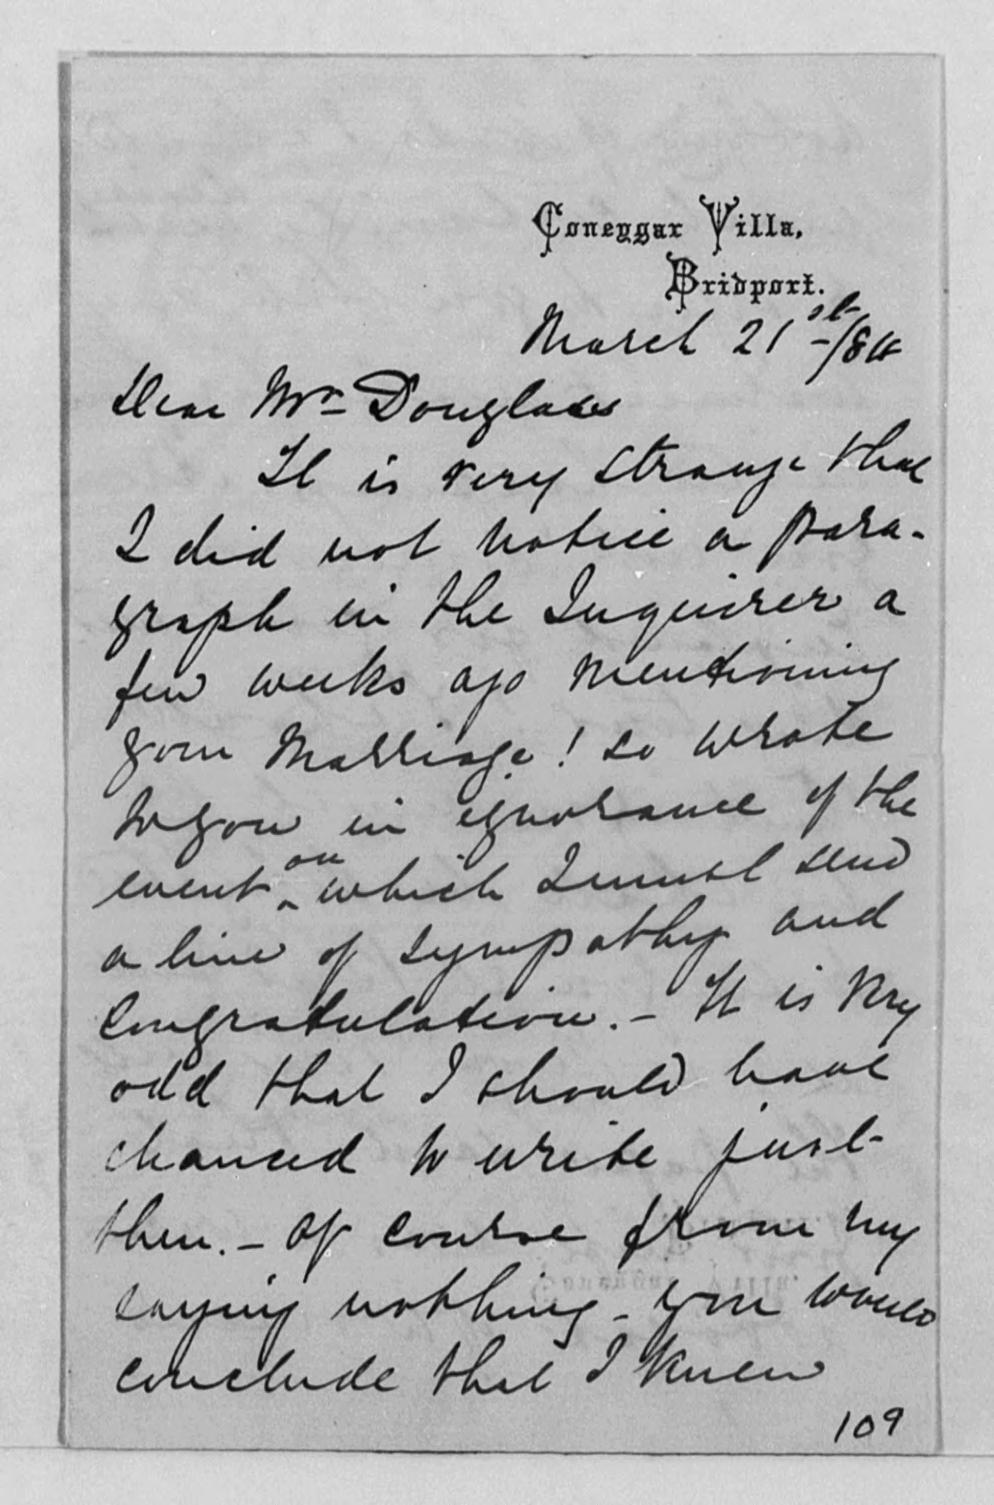 Coneygar Villa,
Bridport.
March 21st/84
Dear Mr Douglass
It is very strange that
I did not notice a para-
graph in the Inquirer a
few weeks ago mentioning
your Marriage! so wrote
to you in ignorance of the
event on which I must send
a line of sympathy and
Congratulation. - It is very
odd that I should have
chanced to write just
then. - Of course from my
saying nothing - you would
conclude that I knew
109